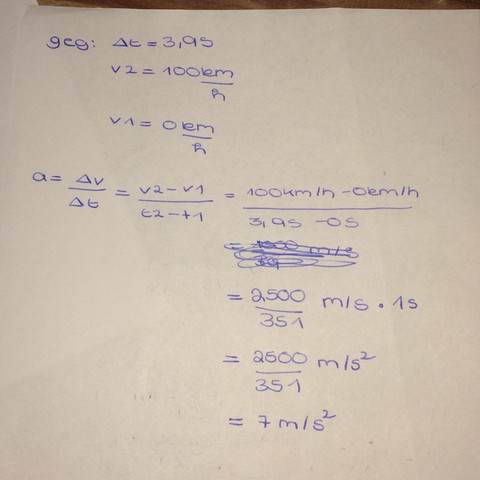 geg: Δt = 3,9s
v2 = 100 km/h
v1 = 0 km/h
a = Δv/Δt = v2-v1/t2-t1 = 100km/h - 0km/h / 3,9s - 0s
= 2500/351 m/s • 1s
= 2500/351 m/s²
= 7 m/s²